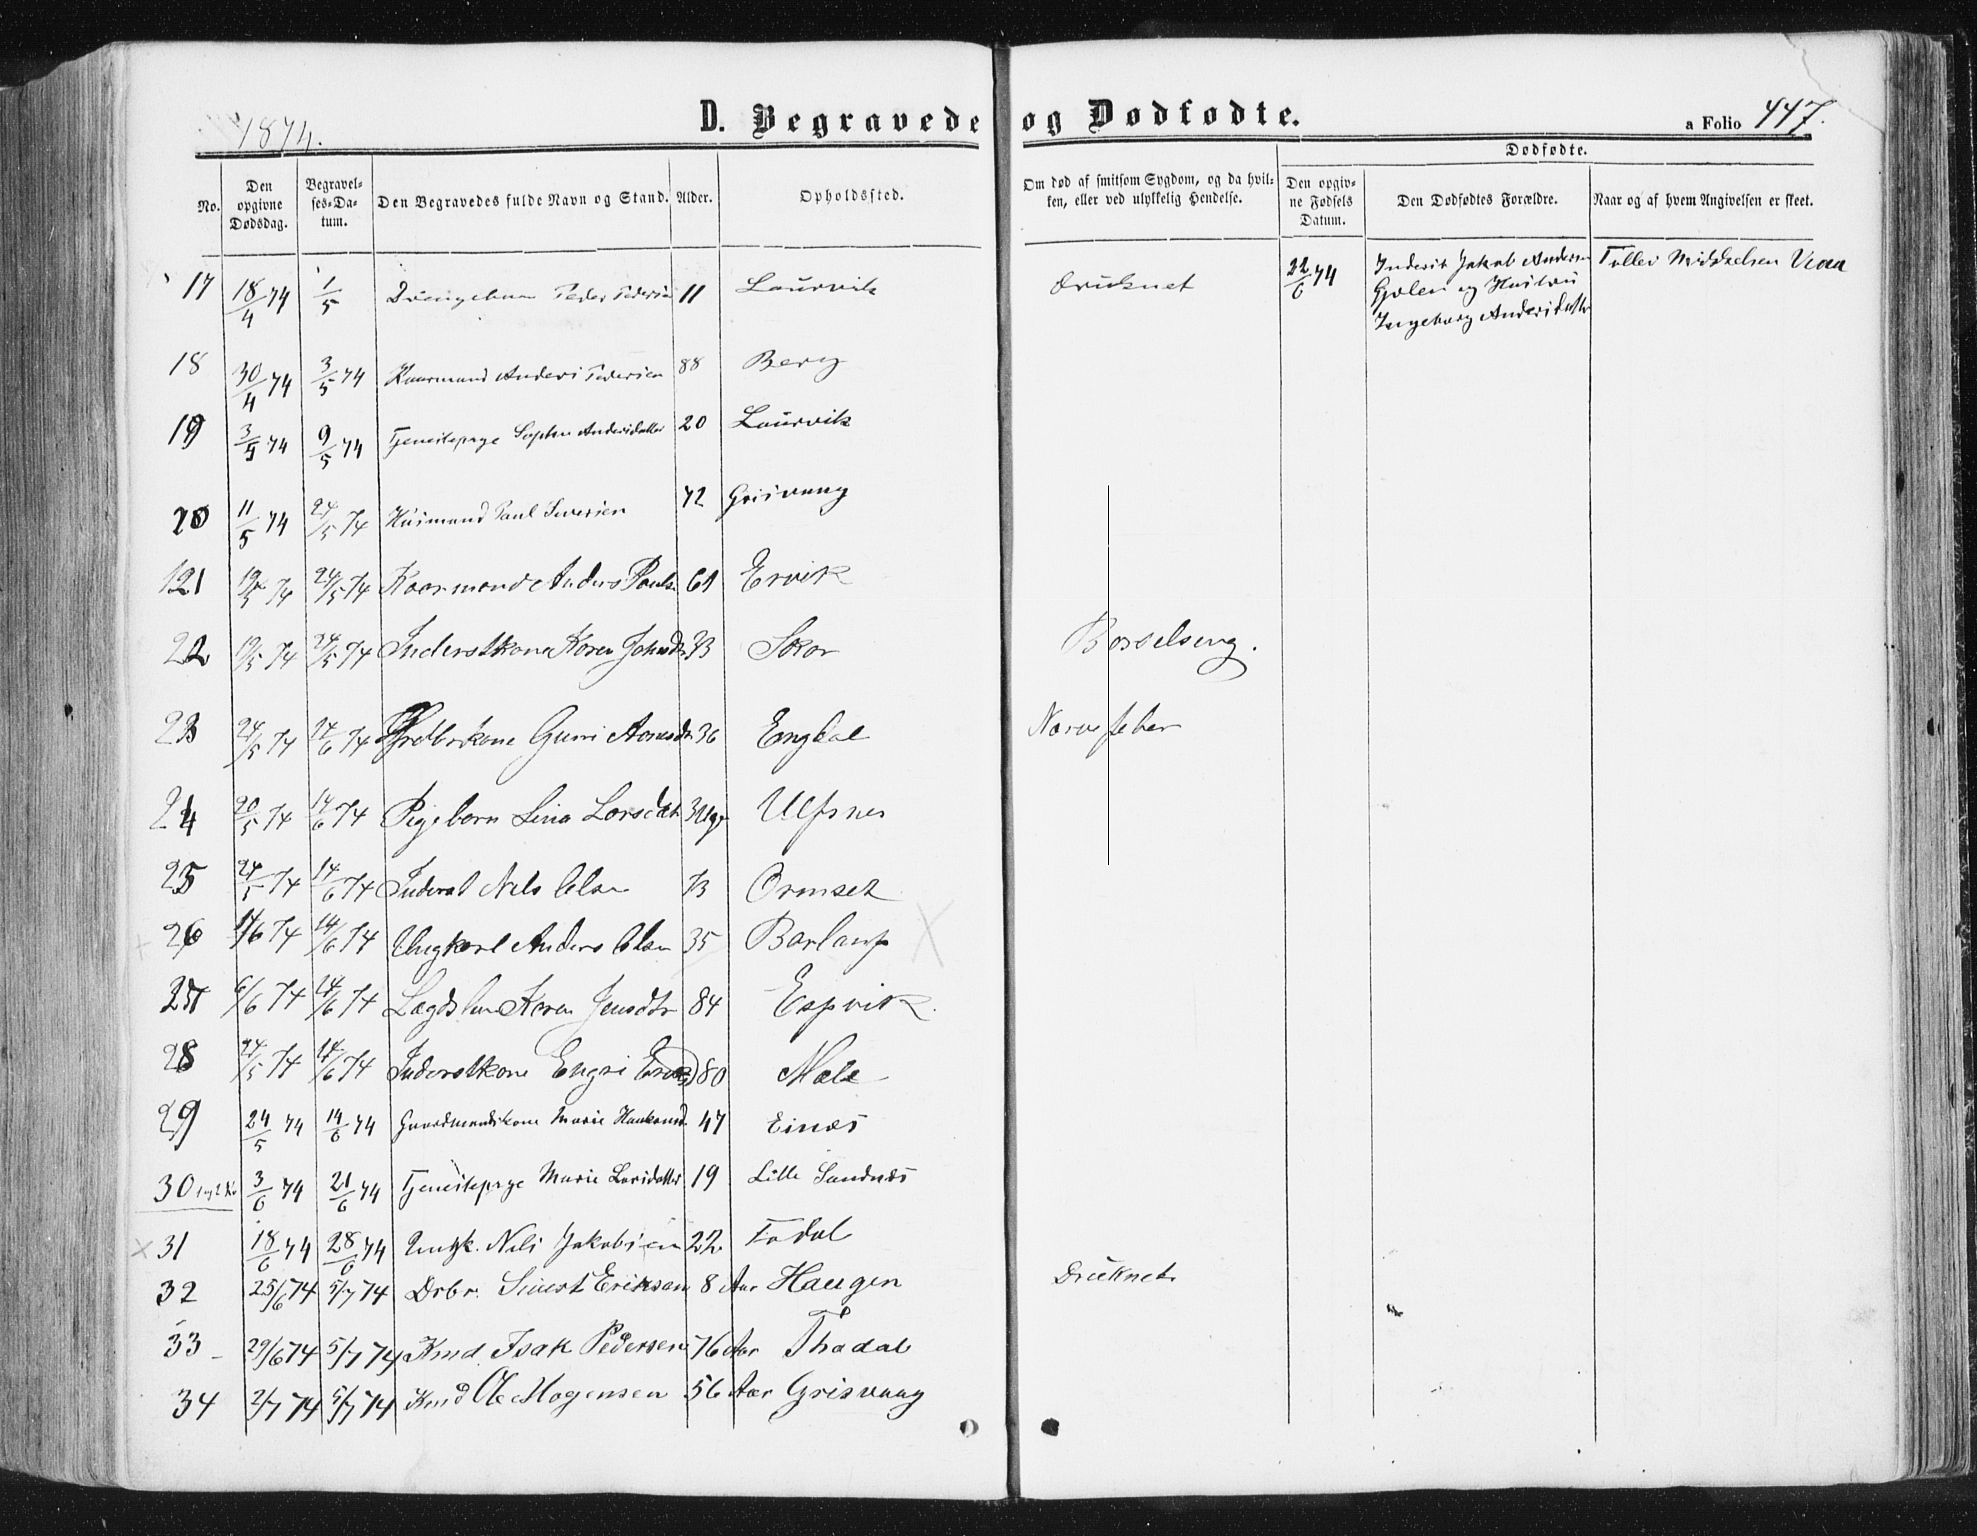 1874.
D. Begravede og Dødfødte.
a Folio 447.
No.
Den opgivne Dødsdag.
Begravel-ses-Da-tum.
Den Begravedes fulde Navn og Stand.
Alder.
Opholdssted.
Om død af smitsom Sygdom, og da hvil-ken, eller ved ulykkelig Hendelse.
Dødfødte.
Den opgiv-ne Fødsels Datum.
Den Dødfødtes Forældre.
Naar og af hvem Angivelsen er skeet.
17 18/4 74 1/5 Drengebarn Peder Pedersen 11 Laurvik Druknet 22/6 74 Inderst Jakob Andersen
Gjølen og Hustru
Ingeborg Andersdatter
18 30/4 74 3/5 74 Kaarmand Anders Pedersen 88 Berg
19 3/5 74 9/5 74 Tjenestepige Andersdatter 20 Laurvik
20 11/5 74 24/5 74 Husmand Paul Siversen 72 Grisvaag
21 19/5 74 24/5 74 Kaarmand Anders Pauls 61 Ervik
22 19/5 74 24/5 74 Inderstkone Karen Johnsdr 33 Skar Barselseng.
23 24/5 74 Guri 36 Engdal Nervefeber
24 20/5 74 14/6 74 Pigebarn Lina Larsdatr 3 Ugr Ulfsnes
25 24/5 74 14/6 74 Inderst Nils Olsen 73 Ormset
26 74 14/6 74 Ungkarl Anders Olsen 35
27 6/6 74 14/6 74 Lægdslem Karen Jensdtr 84 Espvik.
28 24/5 74 14/6 74 Inderstkone Engri 80
29 24/5 74 14/6 74 Gaardmandskone Marie 47 Einæs
30 3/6 74 21/6 74 Tjenestepige Marie Larsdatter 19 Lille Sandnæs
31 18/6 74 28/6 74 Ungk. Nils Jakobsen 22 Todal
32 25/6 74 5/7 74 Drbr. Sivert Eriksen 8 Aar Haugen Druknet
33 29/6 74 5/7 74 Kmd. Isak Pedersen 76 Aar Thodal
34 2/7 74 5/7 74 Kmd Ole Mogensen 56 Aar Grisvaag